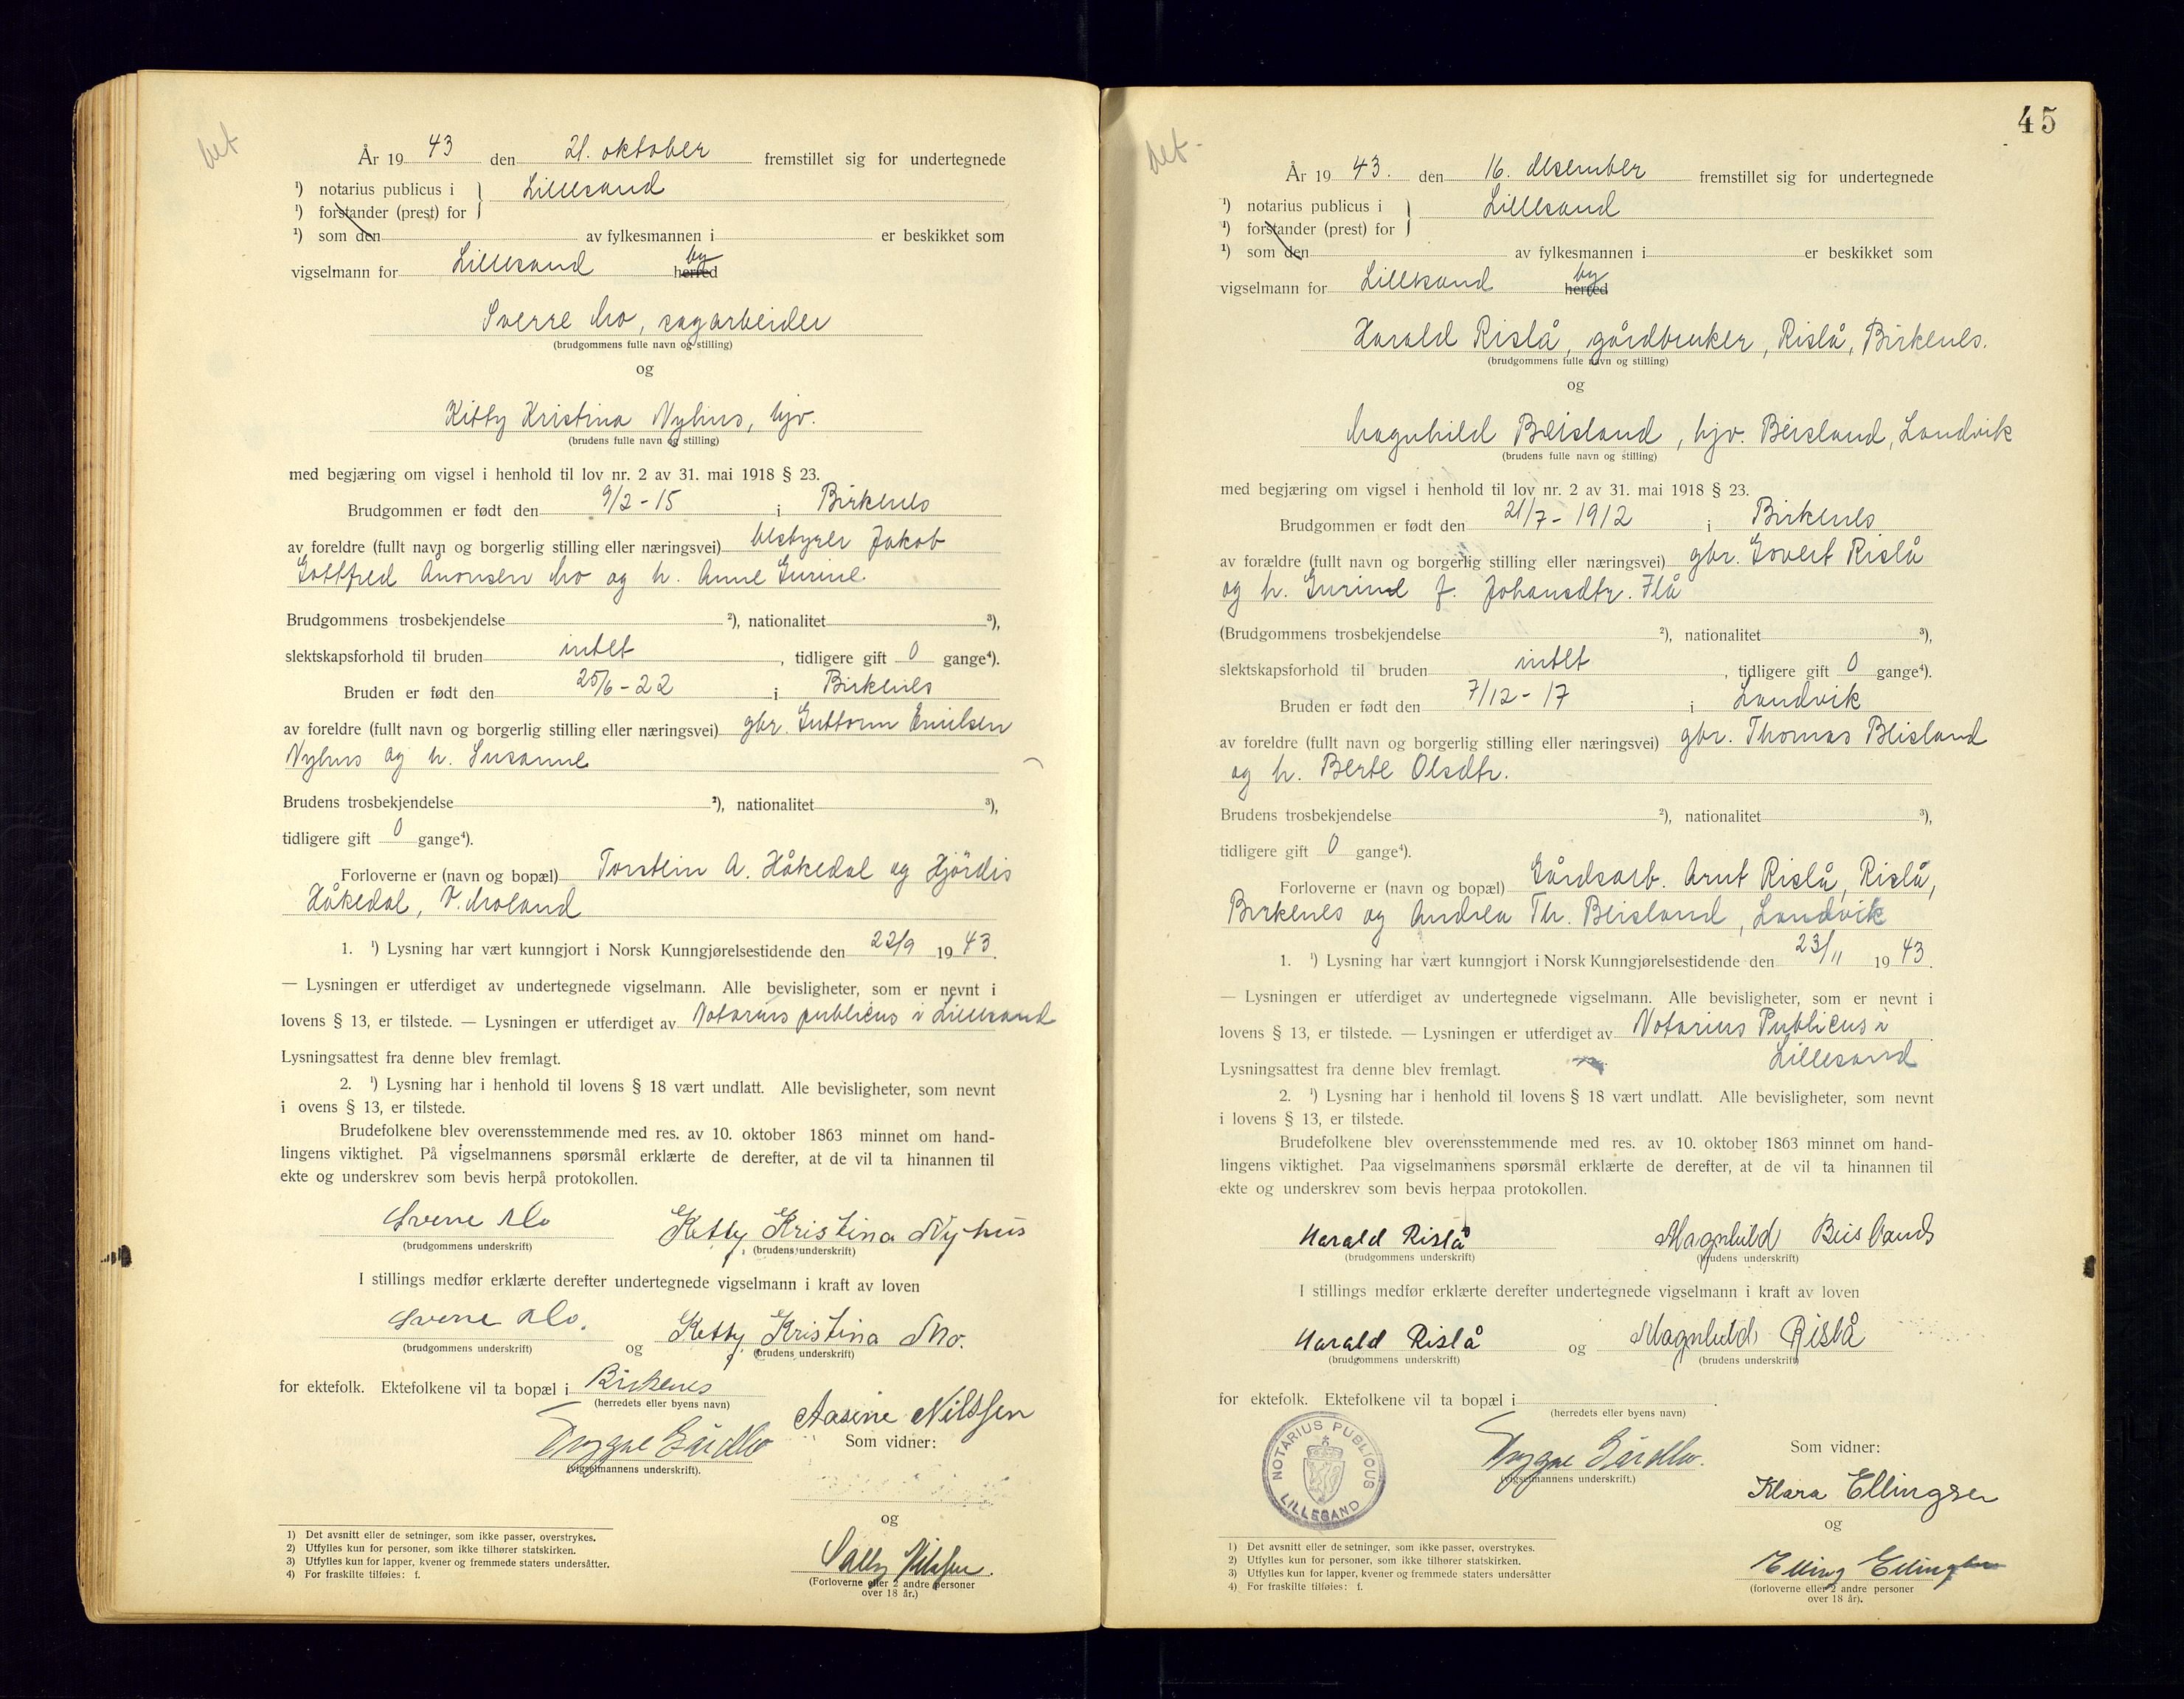 bet
År 1943 den 21. oktober fremstillet sig for undertegnede
¹) notarius publicus i } Lillesand
¹) forstander (prest) for
¹) som den av fylkesmannen i er beskikket som
vigselmann for Lillesand by herred
Sverre Mo, sagarbeider
(brudgommens fulle navn og stilling)
og
Kitty Kristina Nyhus, hjv.
(brudens fulle navn og stilling)
med begjæring om vigsel i henhold til lov nr. 2 av 31. mai 1918 § 23.
Brudgommen er født den 9/2-15 i Birkenes
av foreldre (fullt navn og borgerlig stilling eller næringsvei) bestyrer Jakob
Gottfred Ånonsen Mo og h. Anne Gurine.
Brudgommens trosbekjendelse ²), nationalitet ³),
slektskapsforhold til bruden intet, tidligere gift 0 gange⁴).
Bruden er født den 25/6-22 i Birkenes
av foreldre (fullt navn og borgerlig stilling eller næringsvei) gbr. Guttorm Emilsen
Nyhus og h. Susanne
Brudens trosbekjendelse ²), nationalitet ³),
tidligere gift 0 gange⁴).
Forloverne er (navn og bopæl) Torstein A. Håkedal og Hjördis
Håkedal, V. Moland
1. ¹) Lysning har vært kunngjort i Norsk Kunngjørelsestidende den 22/9 1943.
— Lysningen er utferdiget av undertegnede vigselmann. Alle bevisligheter, som er nevnt i
lovens § 13, er tilstede. — Lysningen er utferdiget av Notarius publicus i Lillesand
Lysningsattest fra denne blev fremlagt.
2. ¹) Lysning har i henhold til lovens § 18 vært undlatt. Alle bevisligheter, som nevnt
i ovens § 13, er tilstede.
Brudefolkene blev overensstemmende med res. av 10. oktober 1863 minnet om hand-
lingens viktighet. På vigselmannens spørsmål erklærte de derefter, at de vil ta hinannen til
ekte og underskrev som bevis herpå protokollen.
Sverre Mo Kitty Kristina Nyhus
(brudgommens underskrift) (brudens underskrift)
I stillings medfør erklærte derefter undertegnede vigselmann i kraft av loven
Sverre Mo. og Kitty Kristina Mo.
(brudgommens underskrift) (brudens underskrift)
for ektefolk. Ektefolkene vil ta bopæl i Birkenes
(herredets eller byens navn)
Aasine Nilssen
Trygve
(vigselmannens underskrift).
Som vidner:
og
Nilssen.
(Forloverne eller 2 andre personer
over 18 år.)
1) Det avsnitt eller de setninger, som ikke passer, overstrykes.
2) Utfylles kun for personer, som ikke tilhører statskirken.
3) Utfylles kun for lapper, kvener og fremmede staters undersåtter.
4) For fraskilte tilføies: f.
45
bet.
År 1943. den 16. desember fremstillet sig for undertegnede
¹) notarius publicus i } Lillesand
¹) forstander (prest) for
¹) som den av fylkesmannen i er beskikket som
vigselmann for Lillesand by herred
Harald Rislå, gårdbruker, Rislå, Birkenes.
(brudgommens fulle navn og stilling)
og
Magnhild Beisland, hjv. Beisland, Landvik
(brudens fulle navn og stilling)
med begjæring om vigsel i henhold til lov nr. 2 av 31. mai 1918 § 23.
Brudgommen er født den 21/7-1912 i Birkenes
av forældre (fullt navn og borgerlig stilling eller næringsvei) gbr. Govert Rislå
og h. Gurine f. Johansdtr. Flå
(Brudgommens trosbekjendelse ²), nationalitet ³),
slektskapsforhold til bruden intet, tidligere gift 0 gange⁴).
Bruden er født den 7/12-17 i Landvik
av foreldre (fullt navn og borgerlig stilling eller næringsvei) gbr. Thomas Beisland
og h. Berte Olsdtr.
Brudens trosbekjendelse ²), nationalitet ³),
tidligere gift 0 gange⁴).
Forloverne er (navn og bopæl) Gårdsarb. Arnt Rislå, Rislå,
Birkenes og Andrea Th. Beisland, Landvik
1. ¹) Lysning har vært kunngjort i Norsk Kunngjørelsestidende den 23/11 1943.
— Lysningen er utferdiget av undertegnede vigselmann. Alle bevisligheter, som er nevnt i
lovens § 13, er tilstede. — Lysningen er utferdiget av Notarius Publicus i
Lillesand
Lysningsattest fra denne blev fremlagt.
2. ¹) Lysning har i henhold til lovens § 18 vært undlatt. Alle bevisligheter, som nevnt
i lovens § 13, er tilstede.
Brudefolkene blev overensstemmende med res. av 10. oktober 1863 minnet om hand-
lingens viktighet. Paa vigselmannens spørsmål erklærte de derefter, at de vil ta hinannen til
ekte og underskrev som bevis herpaa protokollen.
Harald Rislå Magnhild Beisland
(brudgommens underskrift) (brudens underskrift)
I stillings medfør erklærte derefter undertegnede vigselmann i kraft av loven
Harald Rislå og Magnhild Rislå
(brudgommens underskrift) (brudens underskrift)
for ektefolk. Ektefolkene vil ta bopæl i .
(herredets eller byens navn)
NOTARIUS PUBLICUS LILLESAND
Trygve
(vigselmannens underskrift.)
Som vidner:
Klara Ellingsen
og
Elling Ellingsen
(forloverne eller 2 andre personer
over 18 år).
1) Det avsnitt eller de setninger, som ikke passer, overstrykes.
2) Utfylles kun for personer, som ikke tilhører statskirken.
3) Utfylles kun for lapper, kvener og fremmede staters undersåtter
4) For fraskilte tilføies: f.